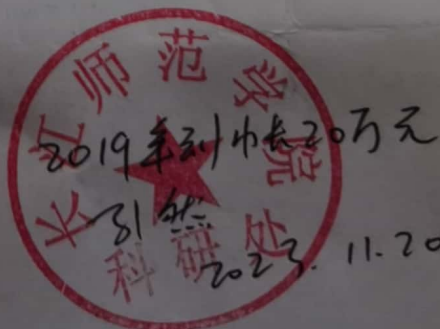 长江师范学院
2019年到帐20万元
科研处
2023.11.20